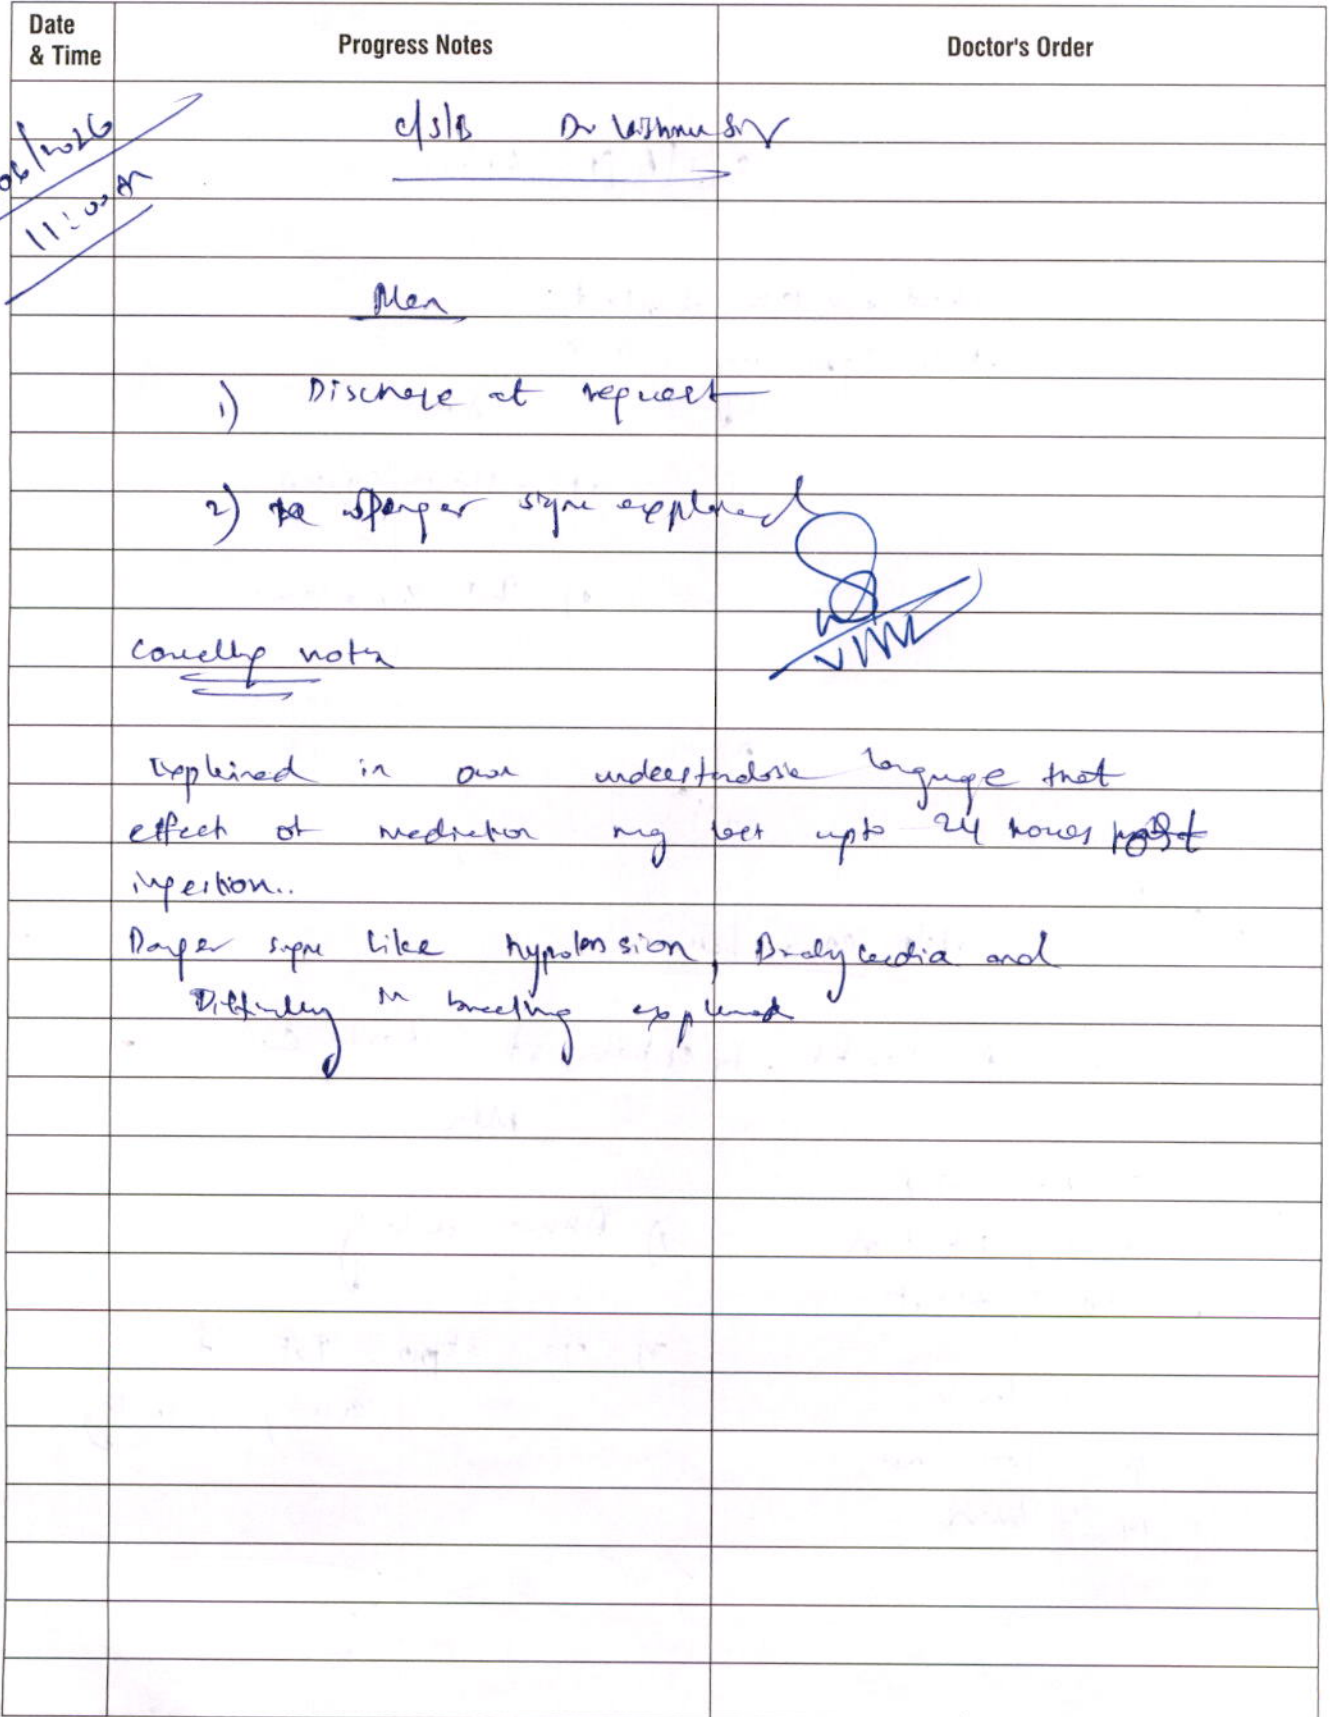 Date & Time
Progress Notes
Doctor's Order
06/2026
11:00 AM
c/s/B Dr Vishnu Sir
Plan
1) Discharge at request
2) Danger signs explained
Counselling notes
Explained in own understandable language that
effect of medication may last upto 24 hours post
ingestion..
Danger signs like hypotension, Bradycardia and
Difficulty in breathing explained